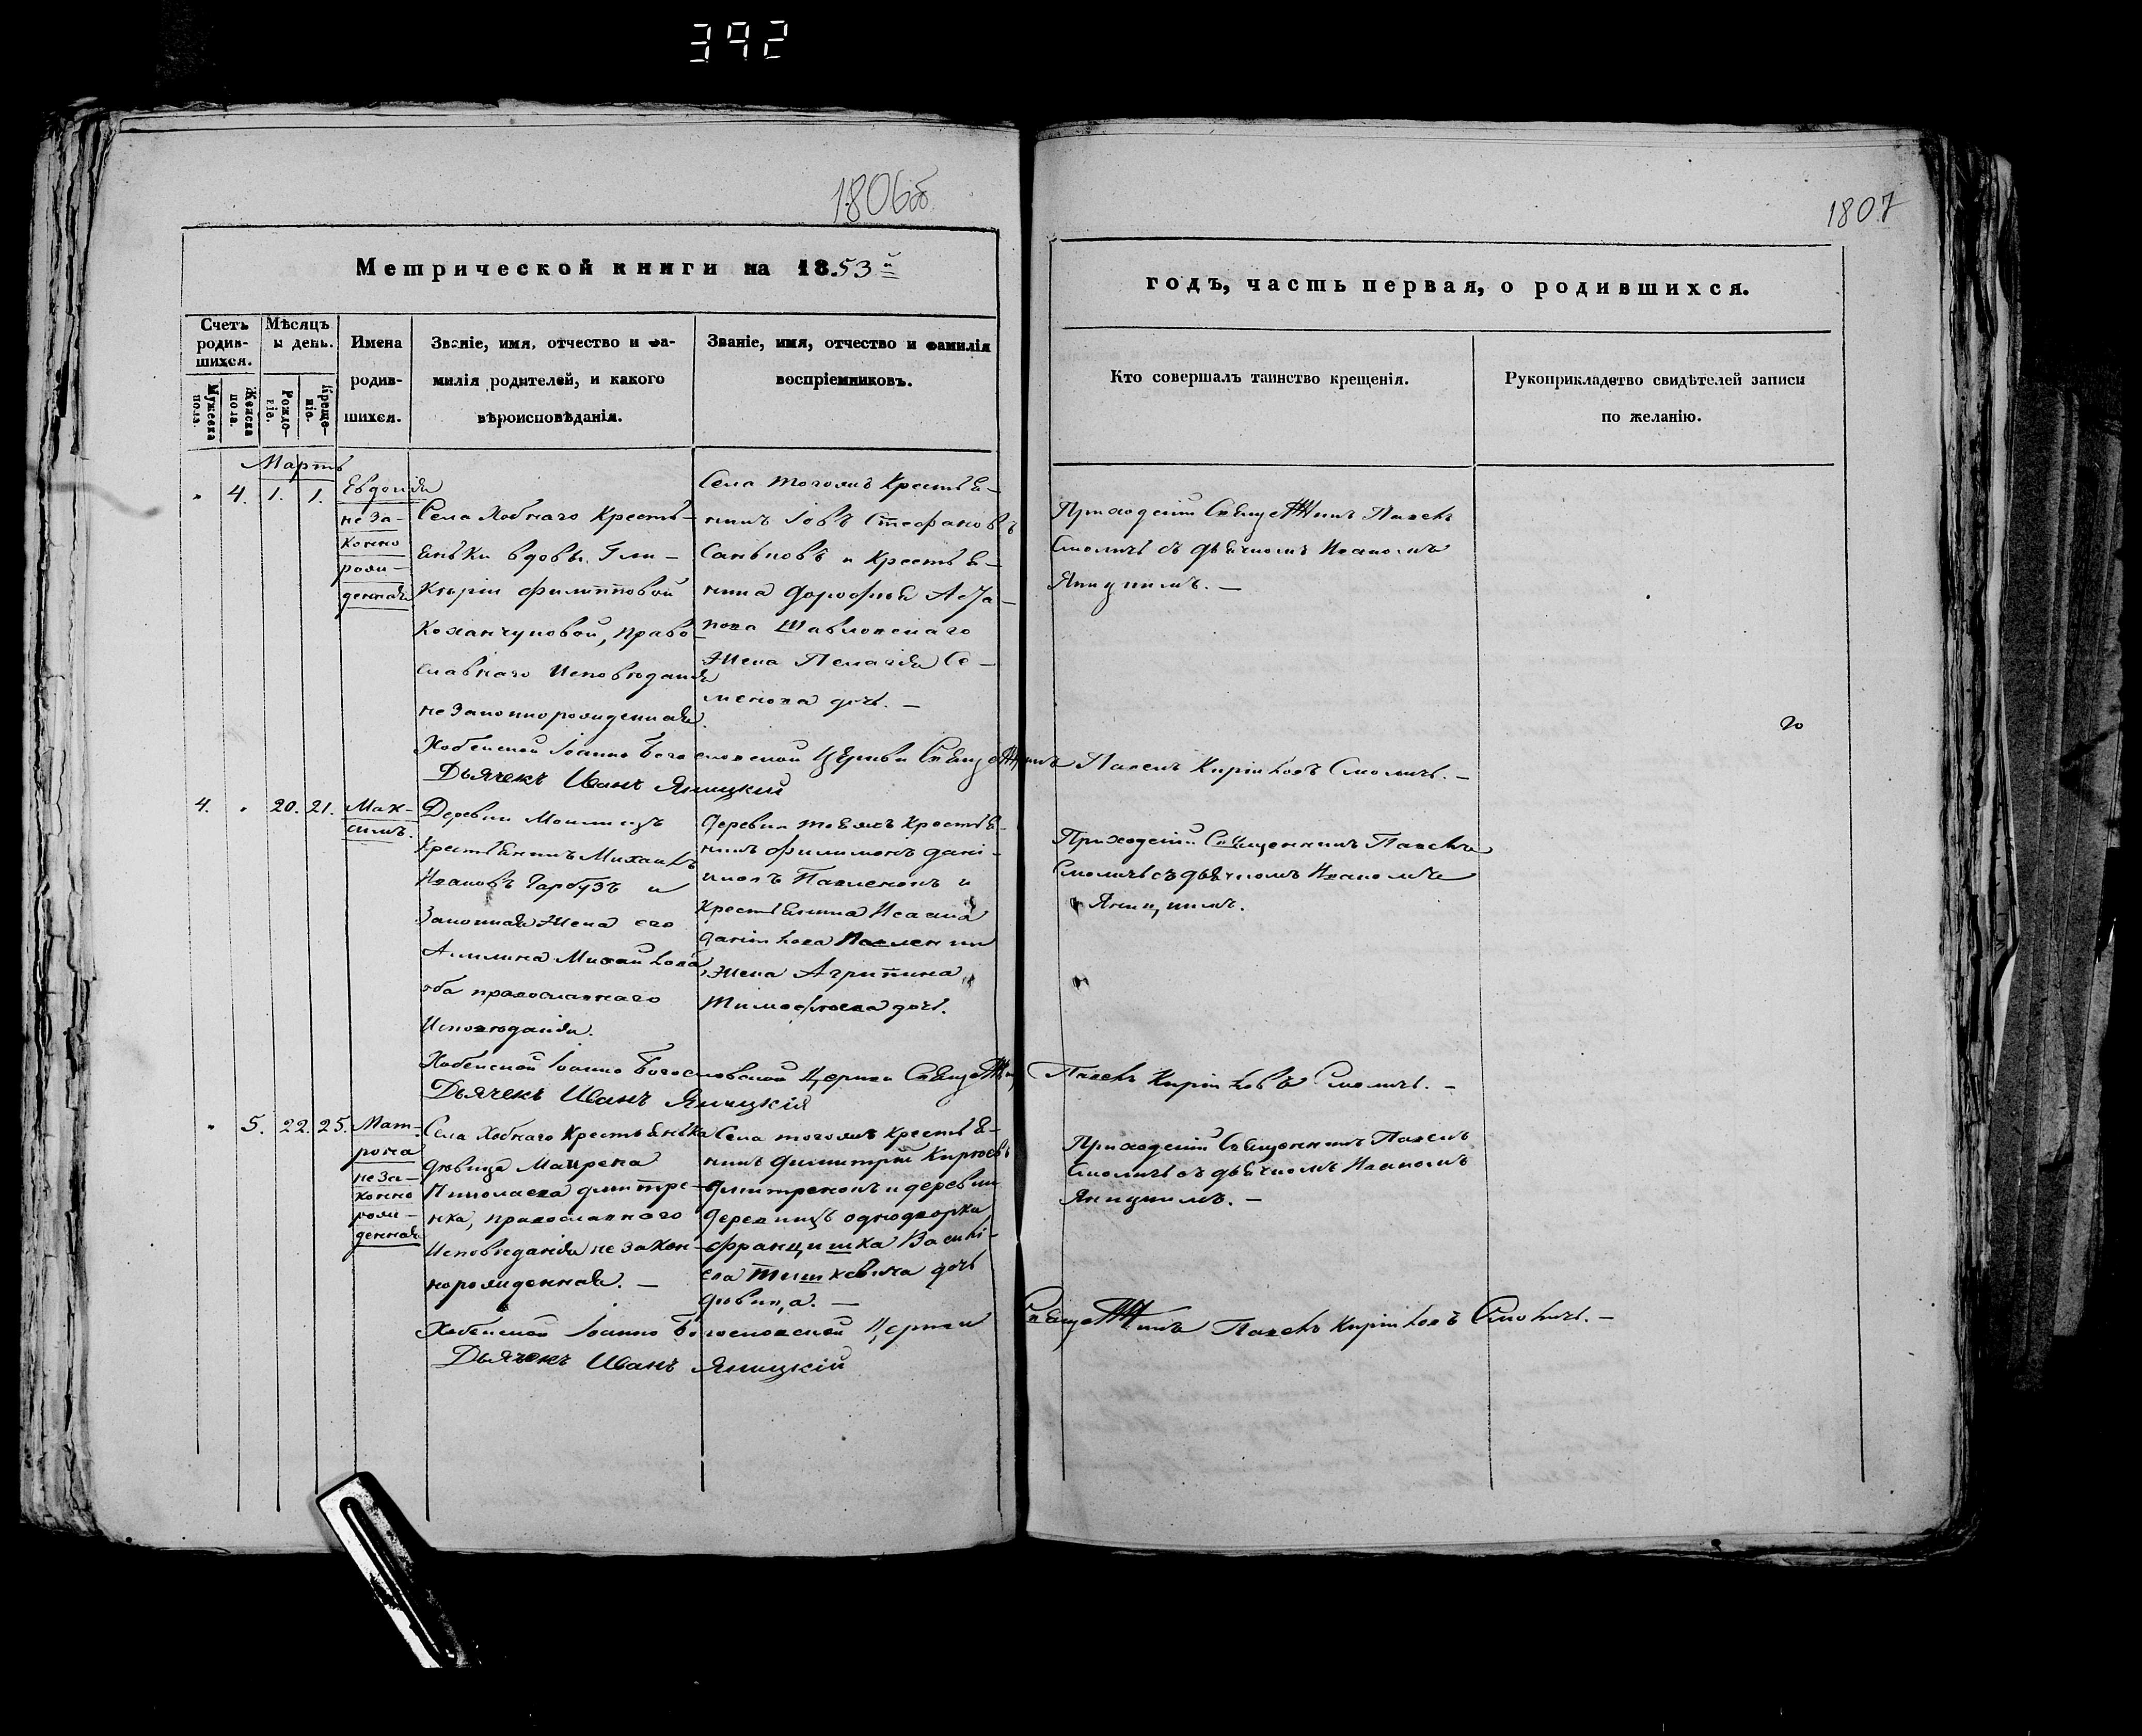 392
1806об
1807
Метрической книги на 1853й
годъ, часть первая, о родившихся.
Счетъ родив-шихся.
Мѣсяцъ и день.
Имена родив-шихся.
Званіе, имя, отчество и фа-
милія родителей, и какого
вѣроисповѣданія.
Званіе, имя, отчество и фамилія
воспріемниковъ.
Кто совершалъ таинство крещенія.
Рукоприкладство свидѣтелей записи
по желанію.
Мужеска пола.
Женска пола.
Рожде-ніе.
Креще-ніе.
Мартъ
" 4. 1. 1.
Евдокія
не за-
конно
рож-
денная
Села Хобнаго Кресть-
яньки вдовы Гли-
Филипповой
право
славнаго Исповѣданія
незаконнорожденная.
Села тогожъ Крестья-
нинъ Іовъ Стефановъ
и Крестья-
нина Дорофѣя
Жена Пелагія Се-
менова дочь. —
Приходскій Священникъ Павелъ
Смоличъ съ дьячкомъ Иваномъ
Яницкимъ. —
Хобенской Іоанно Богословской Церкви Священникъ Павелъ Кириловъ Смоличъ. —
Дьячекъ Иванъ Яницкій
4. " 20. 21.
Мак-
симъ.
Деревни
Крестьянинъ Михаилъ
Ивановъ Гарбузъ и
Законная Жена его
Акилина Михайлова,
оба православнаго
Исповѣданія.
Деревни тоежъ Крестья-
нинъ Филимонъ Дані-
иловъ Павленокъ и
Крестьянина Исаака
Даніилова Павленки
Жена Агрипина
Тимофѣева дочь.
Приходскій Священникъ Павелъ
Смоличъ съ дьячкомъ Иваномъ
Яницкимъ.
Хобенской Іоанно Богословской Церкви Священникъ Павелъ Кириловъ Смоличъ. —
Дьячекъ Иванъ Яницкій
" 5. 22. 25.
Мат-
рона
неза-
конно
рож-
денная
Села Хобнаго Крестьянька
дѣвица Маврена
Николаева Дмитре-
нка, православнаго
Исповѣданія незакон-
норожденная. —
Села тогожъ Крестья-
нинъ Димитрій
Дмитренокъ и деревни
однодворка
Францишка Василі-
ева Тишкевича дочь
дѣвица. —
Приходскій Священникъ Павелъ
Смоличъ съ дьячкомъ Иваномъ
Яницкимъ. —
Хобенской Іоанно Богословской Церкви Священникъ Павелъ Кириловъ Смоличъ. —
Дьячекъ Иванъ Яницкій